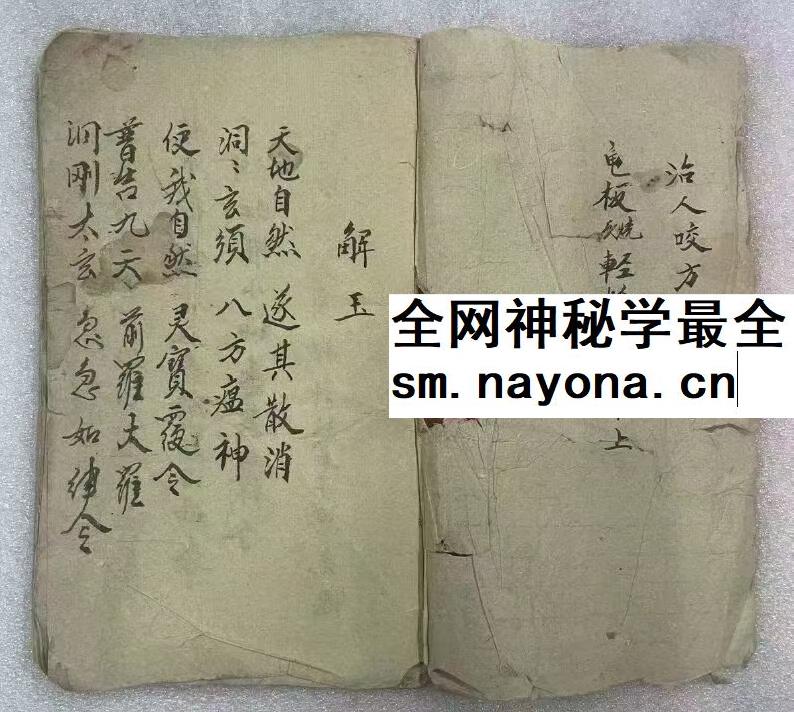 治人咬方
龟板燒輕
上
解玉
天地自然 遂其散消
洞〻玄須 八方瘟神
使我自然 灵寶覆令
普告九天 前羅大羅
洞刚太玄 急急如律令
全网神秘学最全
sm.nayona.cn